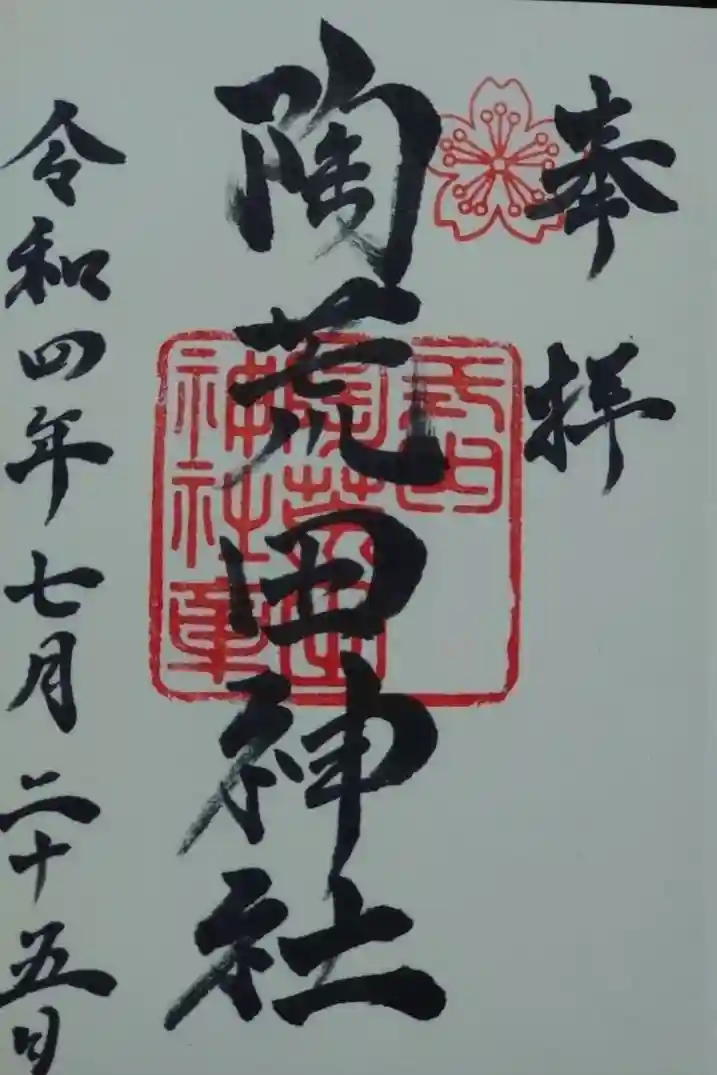 奉拝
陶荒田神社
令和四年七月二十五日
陶荒田
神社章